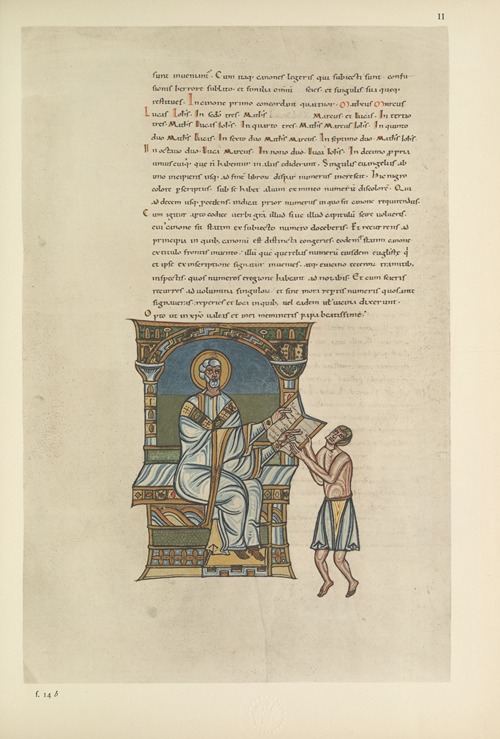 II
sunt inueniant. Cum itaq; canones legeris, qui subiecti sunt confu
sionis herrore sublato, et similia omniū scies, et singulis sua quoq;
restitues. In cinone primo concordant quattuor. Matheus Marcus
Lucas Iohis. In scdo tres. Marcus et lucas. In tertio
tres. Lucas Iohis. In quarto tres. Marcus Iohis. In quinto
duo Lucas. In sexto duo Marcus. In septimo duo
In octauo duo. Luca Marcus. In nono duo. Luca Iohis. In decimo, ppria
unusquisq; que n̄ habentur in aliis ediderunt. Singulis euangeliis, ab
uno incipiens usq; ad finē libroru dispar numerus increscit. Hic nigro
colore pscriptus, sub se habet alium ex minio numerū discolorē. Qui
ad decem usq; pcedens, indicat prior numerus in quo sit canone requirendus.
Cum igitur apto codice uerbi grā, illud siue illud capitulū scire uolueris,
cui canonis sit statim ex subiecto numero doceberis. Et recurrens ad
principia in quib; canonū est distincta congeries, eodemq; statim canone
ex titulo frontis inuento, illū que querebas numerū eiusdem euglistę q
et ipse ex inscriptione signatur inuenies, atq; e uicino ceterorum tramitib;
inspectis, quos numeros e regione habeant adnotabis. Et cum scieris
recurres ad uolumina singulorū, et sine mora reptis numeris quos ante
signaueras, reperies et loca in quib; uel eadem uel uicina dixerunt.
Opto ut in xpo ualeas et mei memineris papa beatissime.
f. 14 b